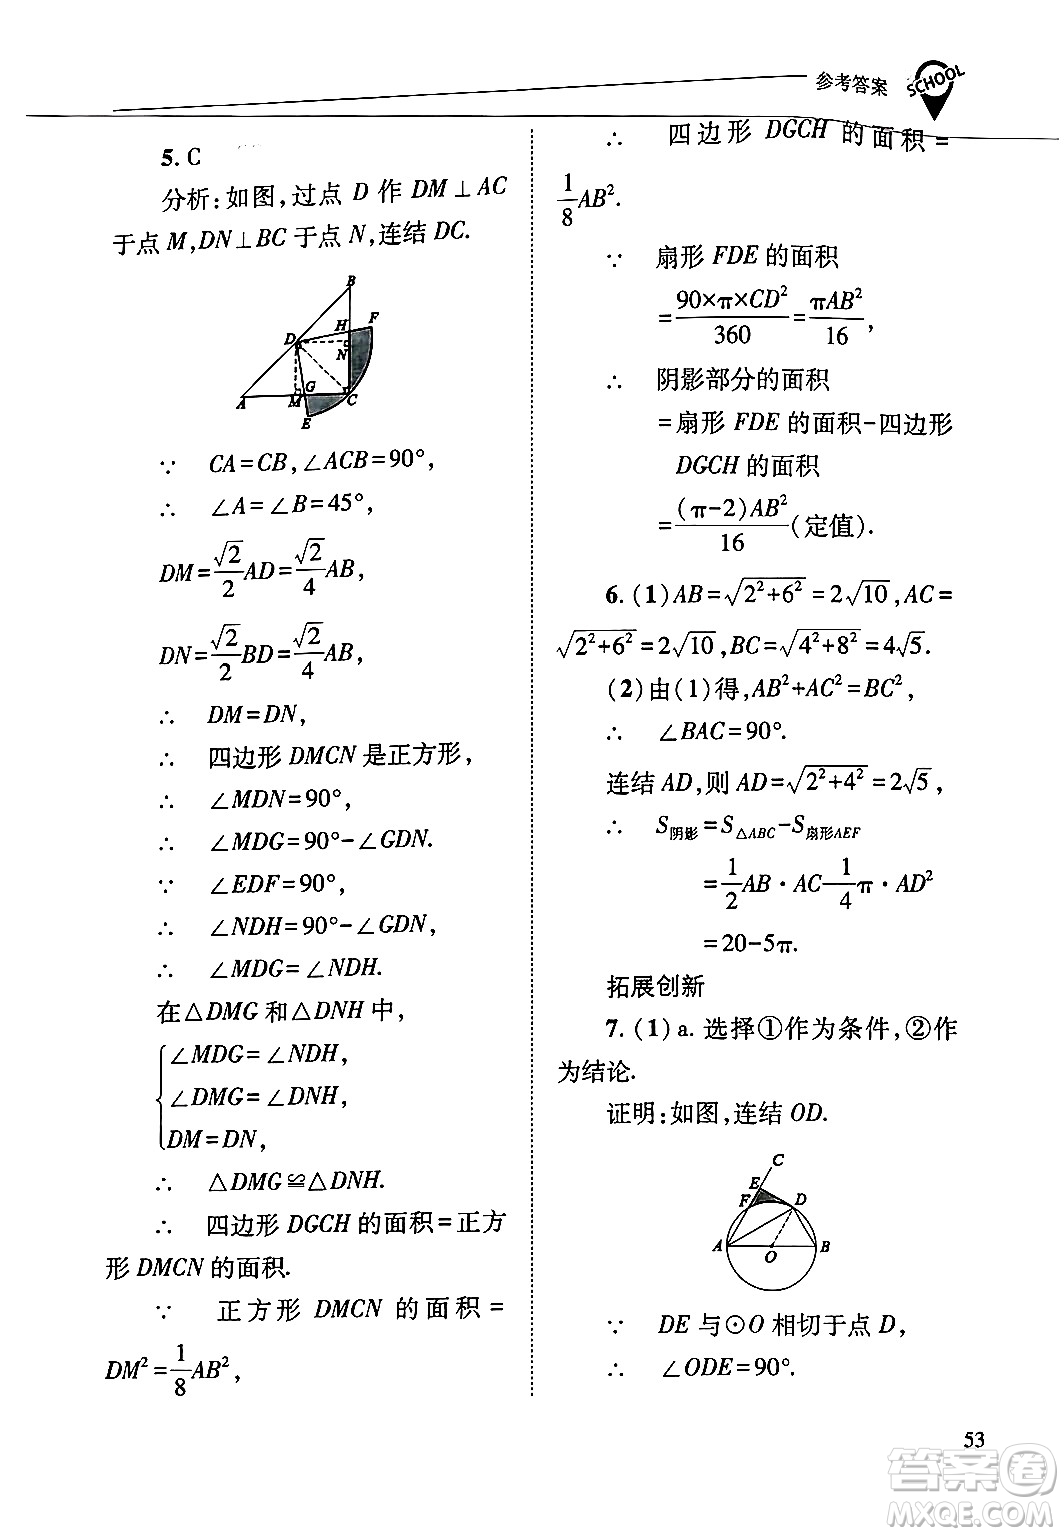 参考答案
SCHOOL
5. C
分析:如图,过点 D 作 DM⊥AC
于点 M,DN⊥BC 于点 N,连结 DC.
B
H
F
D
N
A
M
G
C
E
∵ CA=CB,∠ACB=90°,
∴ ∠A=∠B=45°,
DM=√2/2 AD=√2/4 AB,
DN=√2/2 BD=√2/4 AB,
∴ DM=DN,
∴ 四边形 DMCN 是正方形,
∴ ∠MDN=90°,
∴ ∠MDG=90°-∠GDN.
∵ ∠EDF=90°,
∴ ∠NDH=90°-∠GDN,
∴ ∠MDG=∠NDH.
在△DMG 和△DNH 中,
{∠MDG=∠NDH,
∠DMG=∠DNH,
DM=DN,
∴ △DMG≌△DNH.
∴ 四边形 DGCH 的面积=正方
形 DMCN 的面积.
∵ 正方形 DMCN 的面积=
DM²=1/8 AB²,
∴ 四边形 DGCH 的面积=
1/8 AB².
∵ 扇形 FDE 的面积
=90×π×CD²/360=πAB²/16,
∴ 阴影部分的面积
=扇形 FDE 的面积-四边形
DGCH 的面积
=(π-2)AB²/16(定值).
6. (1)AB=√(2²+6²)=2√10,AC=
√(2²+6²)=2√10,BC=√(4²+8²)=4√5.
(2)由(1)得,AB²+AC²=BC²,
∴ ∠BAC=90°.
连结 AD,则 AD=√(2²+4²)=2√5,
∴ S阴影=S△ABC-S扇形AEF
=1/2 AB·AC-1/4 π·AD²
=20-5π.
拓展创新
7. (1)a. 选择①作为条件,②作
为结论.
证明:如图,连结 OD.
C
E
F
D
A
O
B
∵ DE 与⊙O 相切于点 D,
∴ ∠ODE=90°.
53
答案卷
MXQE.COM